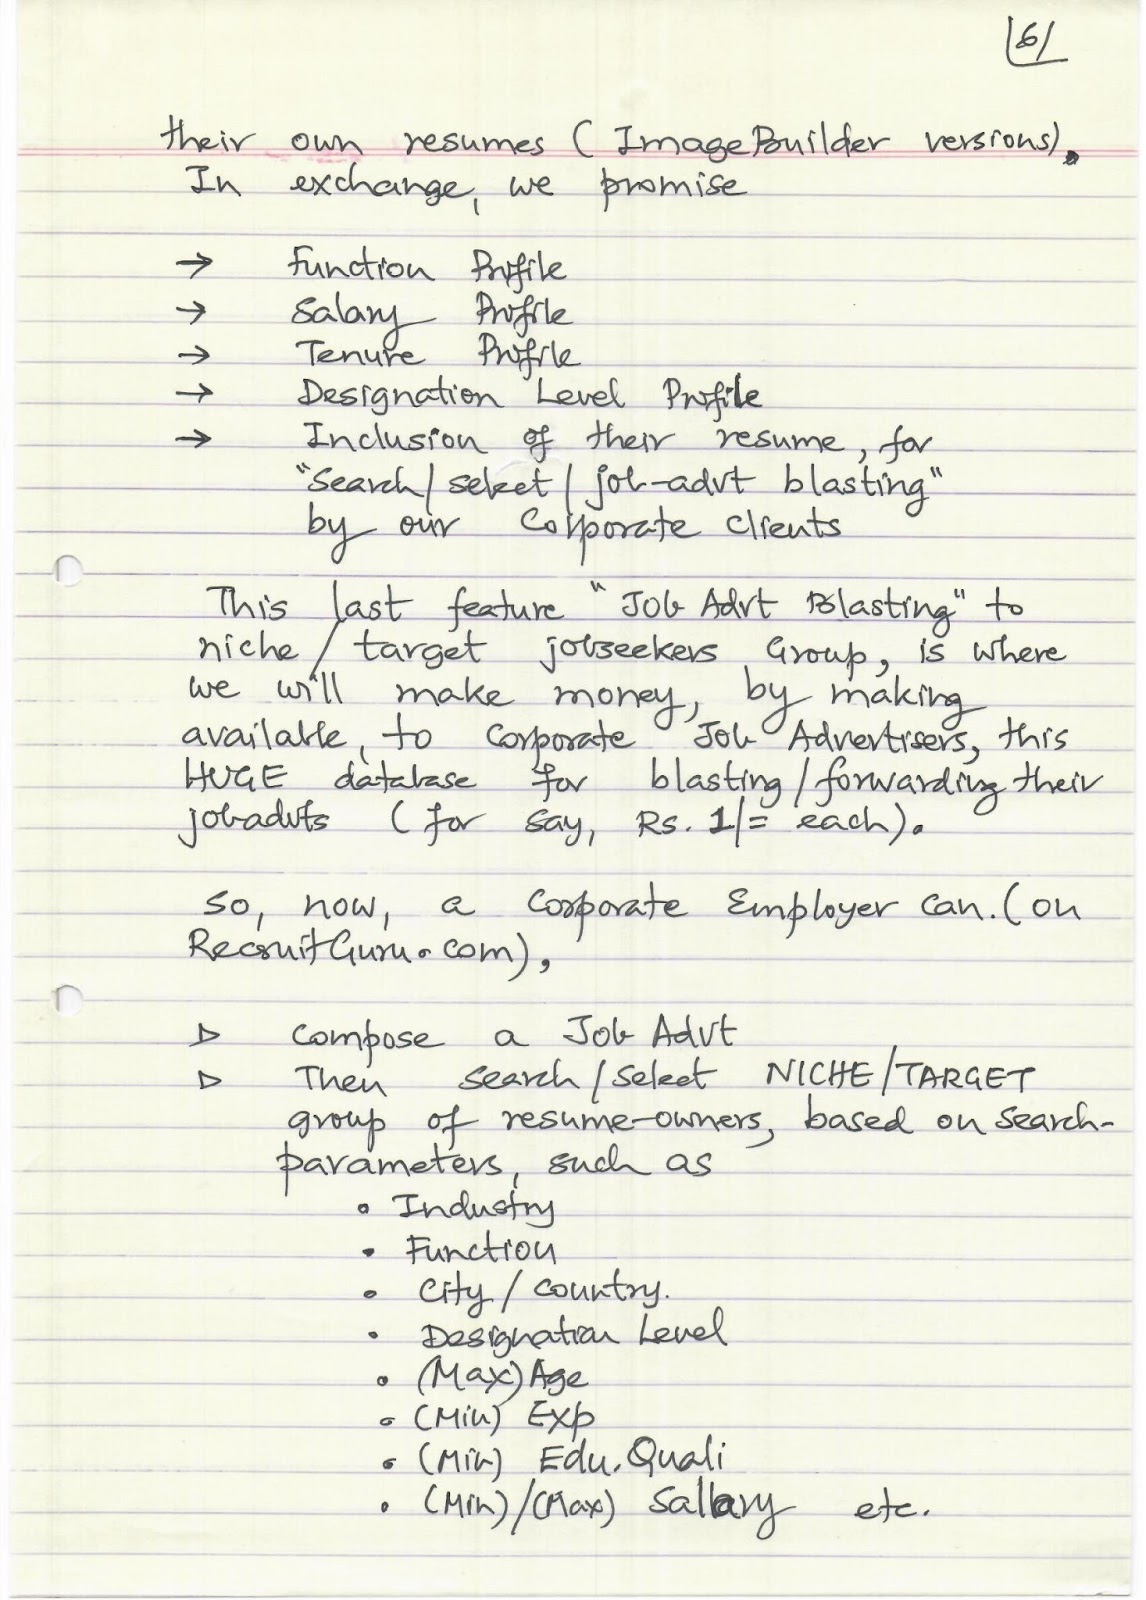 6
their own resumes ( ImageBuilder versions).
In exchange, we promise
→ Function Profile
→ Salary Profile
→ Tenure Profile
→ Designation Level Profile
→ Inclusion of their resume, for
"Search/select/job-advt blasting"
by our Corporate clients
This last feature "Job Advt Blasting" to
niche/target jobseekers Group, is where
we will make money, by making
available, to Corporate Job Advertisers, this
HUGE database for blasting/forwarding their
jobadvts (for say, Rs. 1/= each).
So, now, a Corporate Employer can (on
RecruitGuru.com),
▷ Compose a Job Advt
▷ Then search/select NICHE/TARGET
group of resume-owners, based on search-
parameters, such as
• Industry
• Function
• City / Country.
• Designation Level
• (Max) Age
• (Min) Exp
• (Min) Edu. Quali
• (Min)/(Max) Sallary etc.